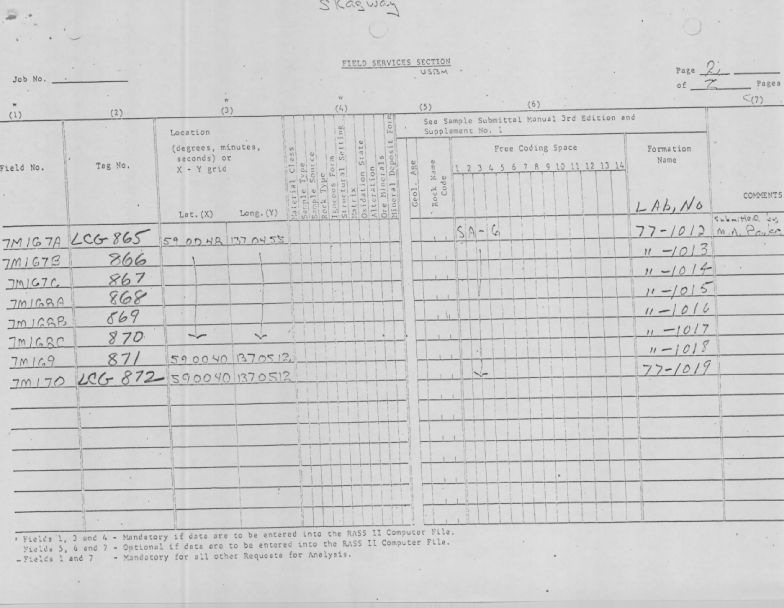 Skagway
FIELD SERVICES SECTION
USBM
Job No.
Page 2
of 2 Pages
(1) (2) (3) (4) (5) (6) (7)
See Sample Submittal Manual 3rd Edition and
Supplement No. 1
Field No. Tag No. Location
(degrees, minutes,
seconds) or
X - Y grid
Lat.(X) Long.(Y)
Material Class
Sample Type
Sample Source
Rock Type
Igneous Form
Structural Setting
Matrix
Oxidation State
Alteration
Ore Minerals
Mineral Deposit Form
Geol. Age
Rock Name
Code
Free Coding Space
1 2 3 4 5 6 7 8 9 10 11 12 13 14
Formation
Name
LAb, No
COMMENTS
Submitted by,
7M167A LCG 865 590048 1370455 SA-6 77-1012 M.A.
7M167B 866 " -1013
7M167C 867 " -1014
7M168A 868 " -1015
7M168B 869 " -1016
7M168C 870 " -1017
7M169 871 590040 1370512 " -1018
7M170 LCG 872 590040 1370512 77-1019
* Fields 1, 3 and 4 - Mandatory if data are to be entered into the RASS II Computer File.
Fields 5, 6 and 7 - Optional if data are to be entered into the RASS II Computer File.
- Fields 1 and 7 - Mandatory for all other Requests for Analysis.